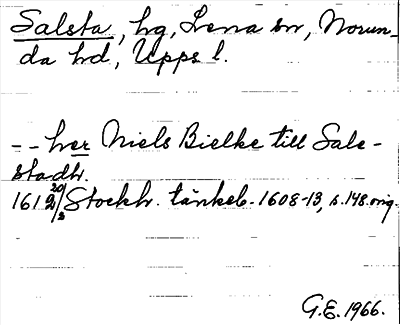 Salsta, hg, Lena sn, Norun-
da hd, Upps l.
-- her Niels Bielke till Sale-
stadh.
1612 20/2 Stockh. tänkeb. 1608-13, s. 148. orig.
G.E. 1966.